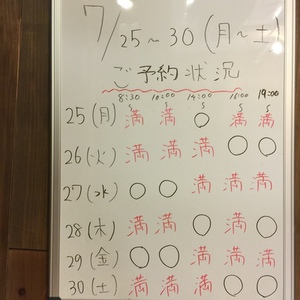 7/25〜30(月〜土)
ご予約状況
8:30 10:00 14:00 16:00 19:00
25(月) 満 満 ○ 満 満
26(火) 満 満 満 ○ ○
27(水) ○ ○ 満 満 満
28(木) 満 満 ○ 満 ○
29(金) ○ ○ 満 満 満
30(土) 満 満 満 ○ ○